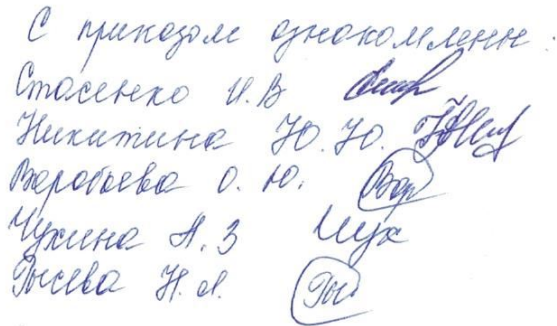 С приказом ознакомлены:
Стасенко И. В
Никитина Ю. Ю.
Воробьева О. Ю.
Чухина А. З Чух
Гысева Н. А. Гы